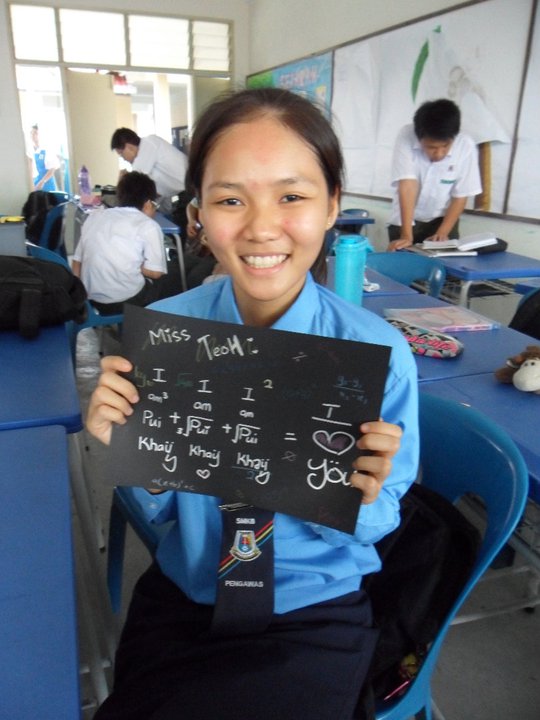 Miss TeoH
I I I 2
am³ am am
Pui + ³√Pui + √Pui = I
Khaij Khaij Khaij ♡
♡ you
SMKB
PENGAWAS